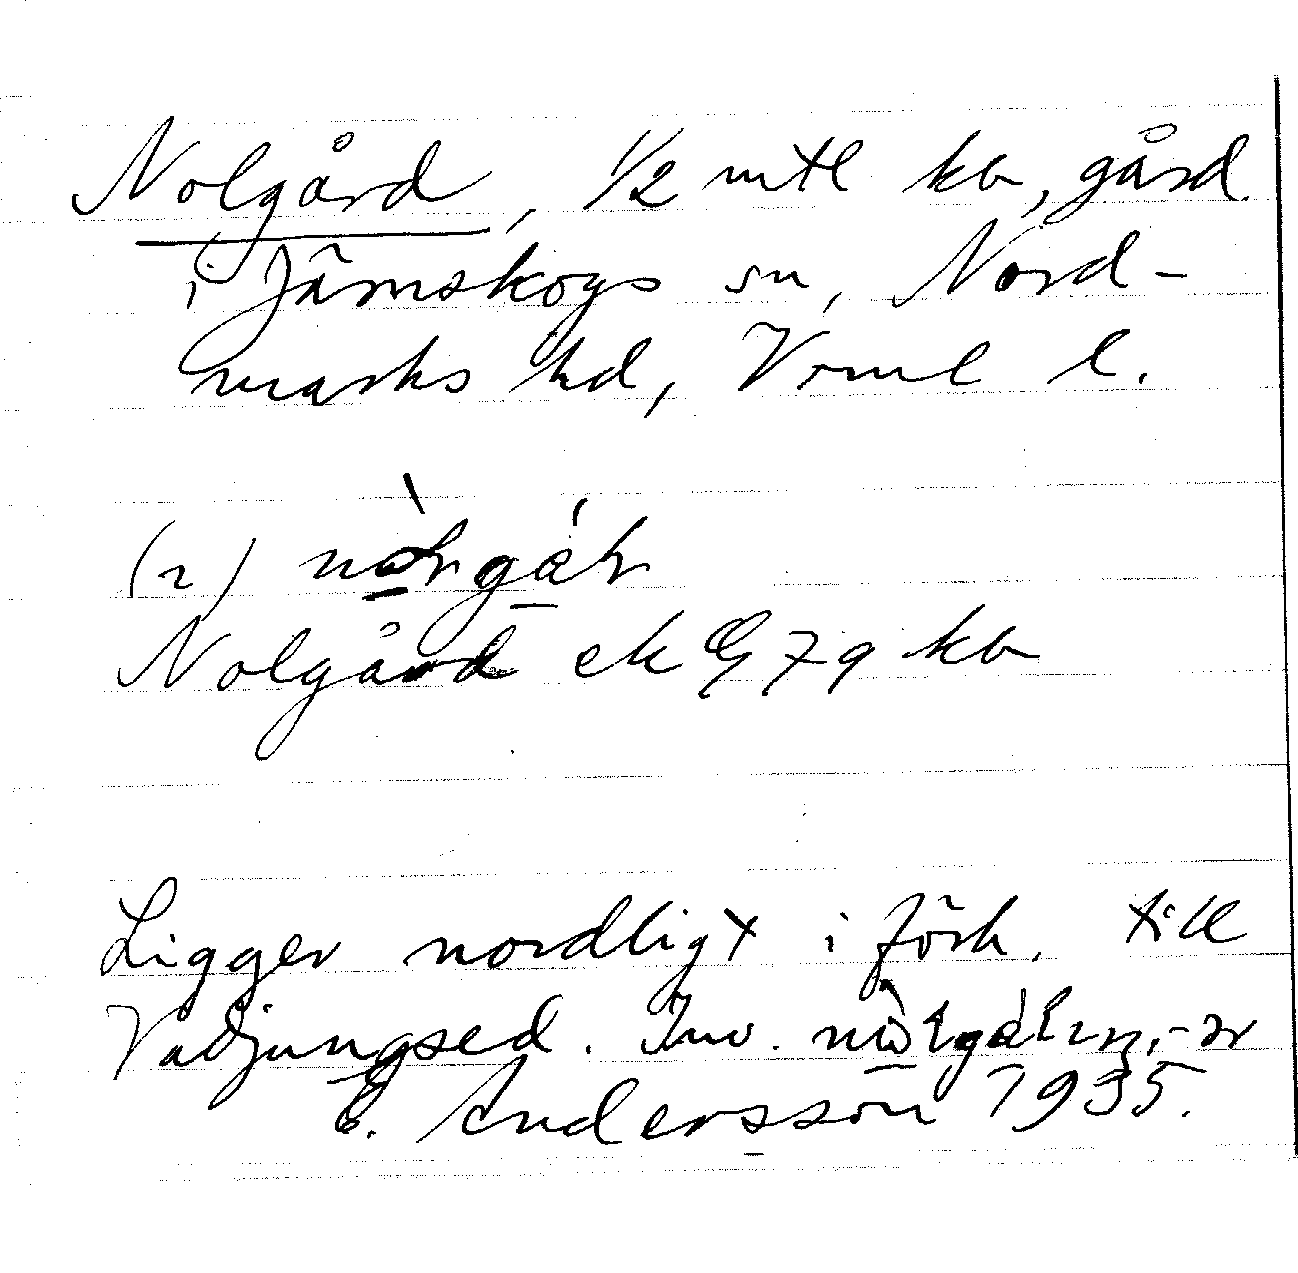 Nolgård, 1/2 mtl kb, gård
i Järnskogs sn, Nord-
marks hd, Vrml l.
(n)
Nolgård ek G 79 kb
Ligger nordligt i förh. till
Vadjungsed. Inv.
E. Andersson 1935.